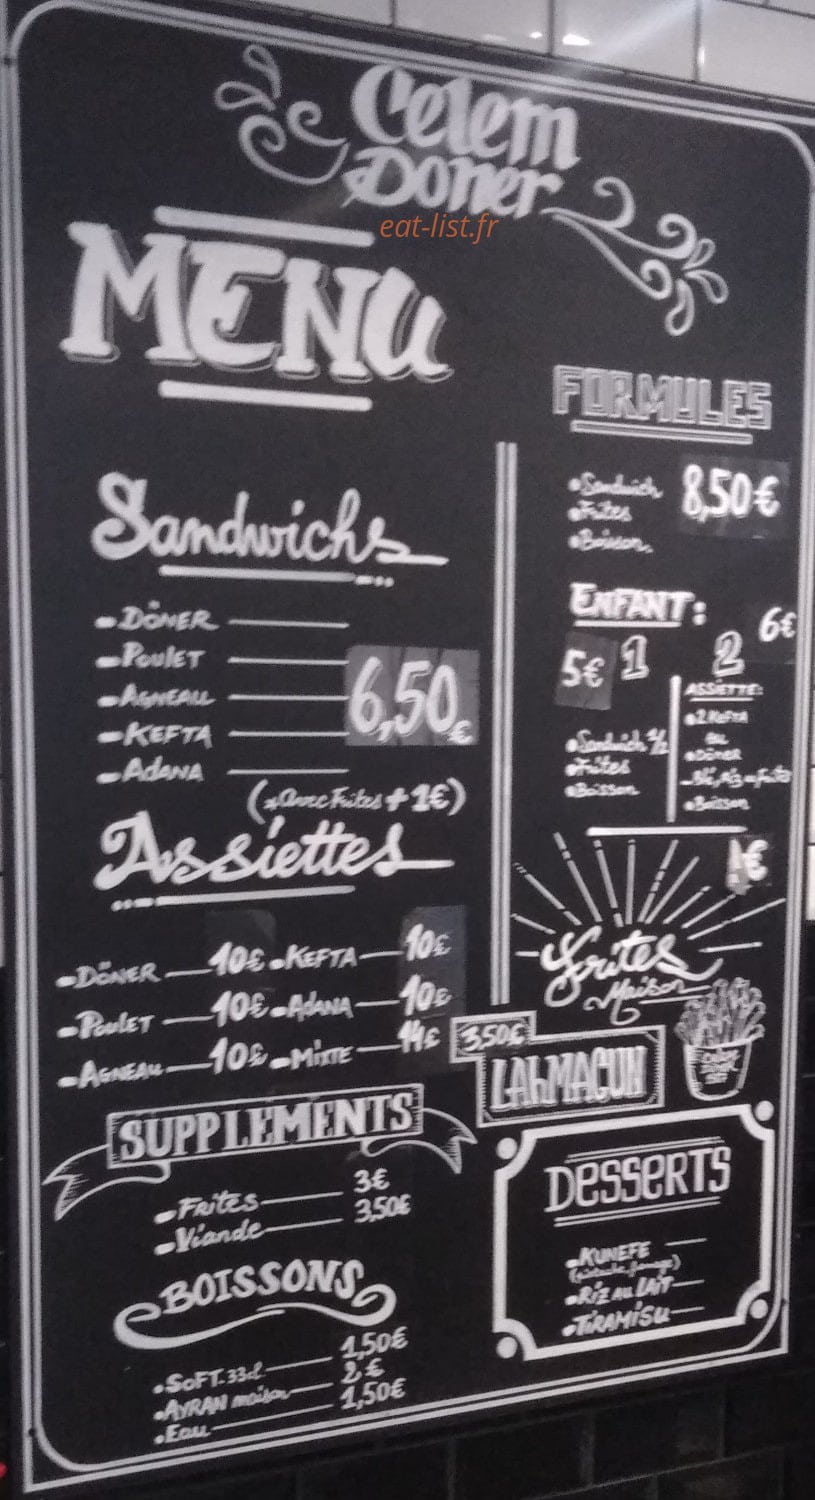 Celem
Döner
eat-list.fr
MENU
Sandwichs
- DÖNER
- Poulet
- AGNEAU
- KEFTA
- ADANA
6,50 €
(* Avec Frites + 1€)
Assiettes
- DÖNER 10€ - KEFTA 10€
- Poulet 10€ - ADANA 10€
- AGNEAU 10€ - MIXTE 14€
SUPPLEMENTS
- Frites 3€
- Viande 3,50€
BOISSONS
• SOFT 33cl 1,50€
• AYRAN maison 2€
• Eau 1,50€
FORMULES
• Sandwich 8,50€
• Frites
• Boisson
ENFANT:
5€ 1
• Sandwich 1/2
• Frites
• Boisson
2 6€
ASSIETTE:
• 2 KEFTA
ou
• DÖNER
- Blé, Riz ou Frites
• Boisson
€
Frites
Maison
3,50€
LAhMACUN
DESSERTS
• KUNEFE
• RIZ AU LAIT
• TIRAMISU